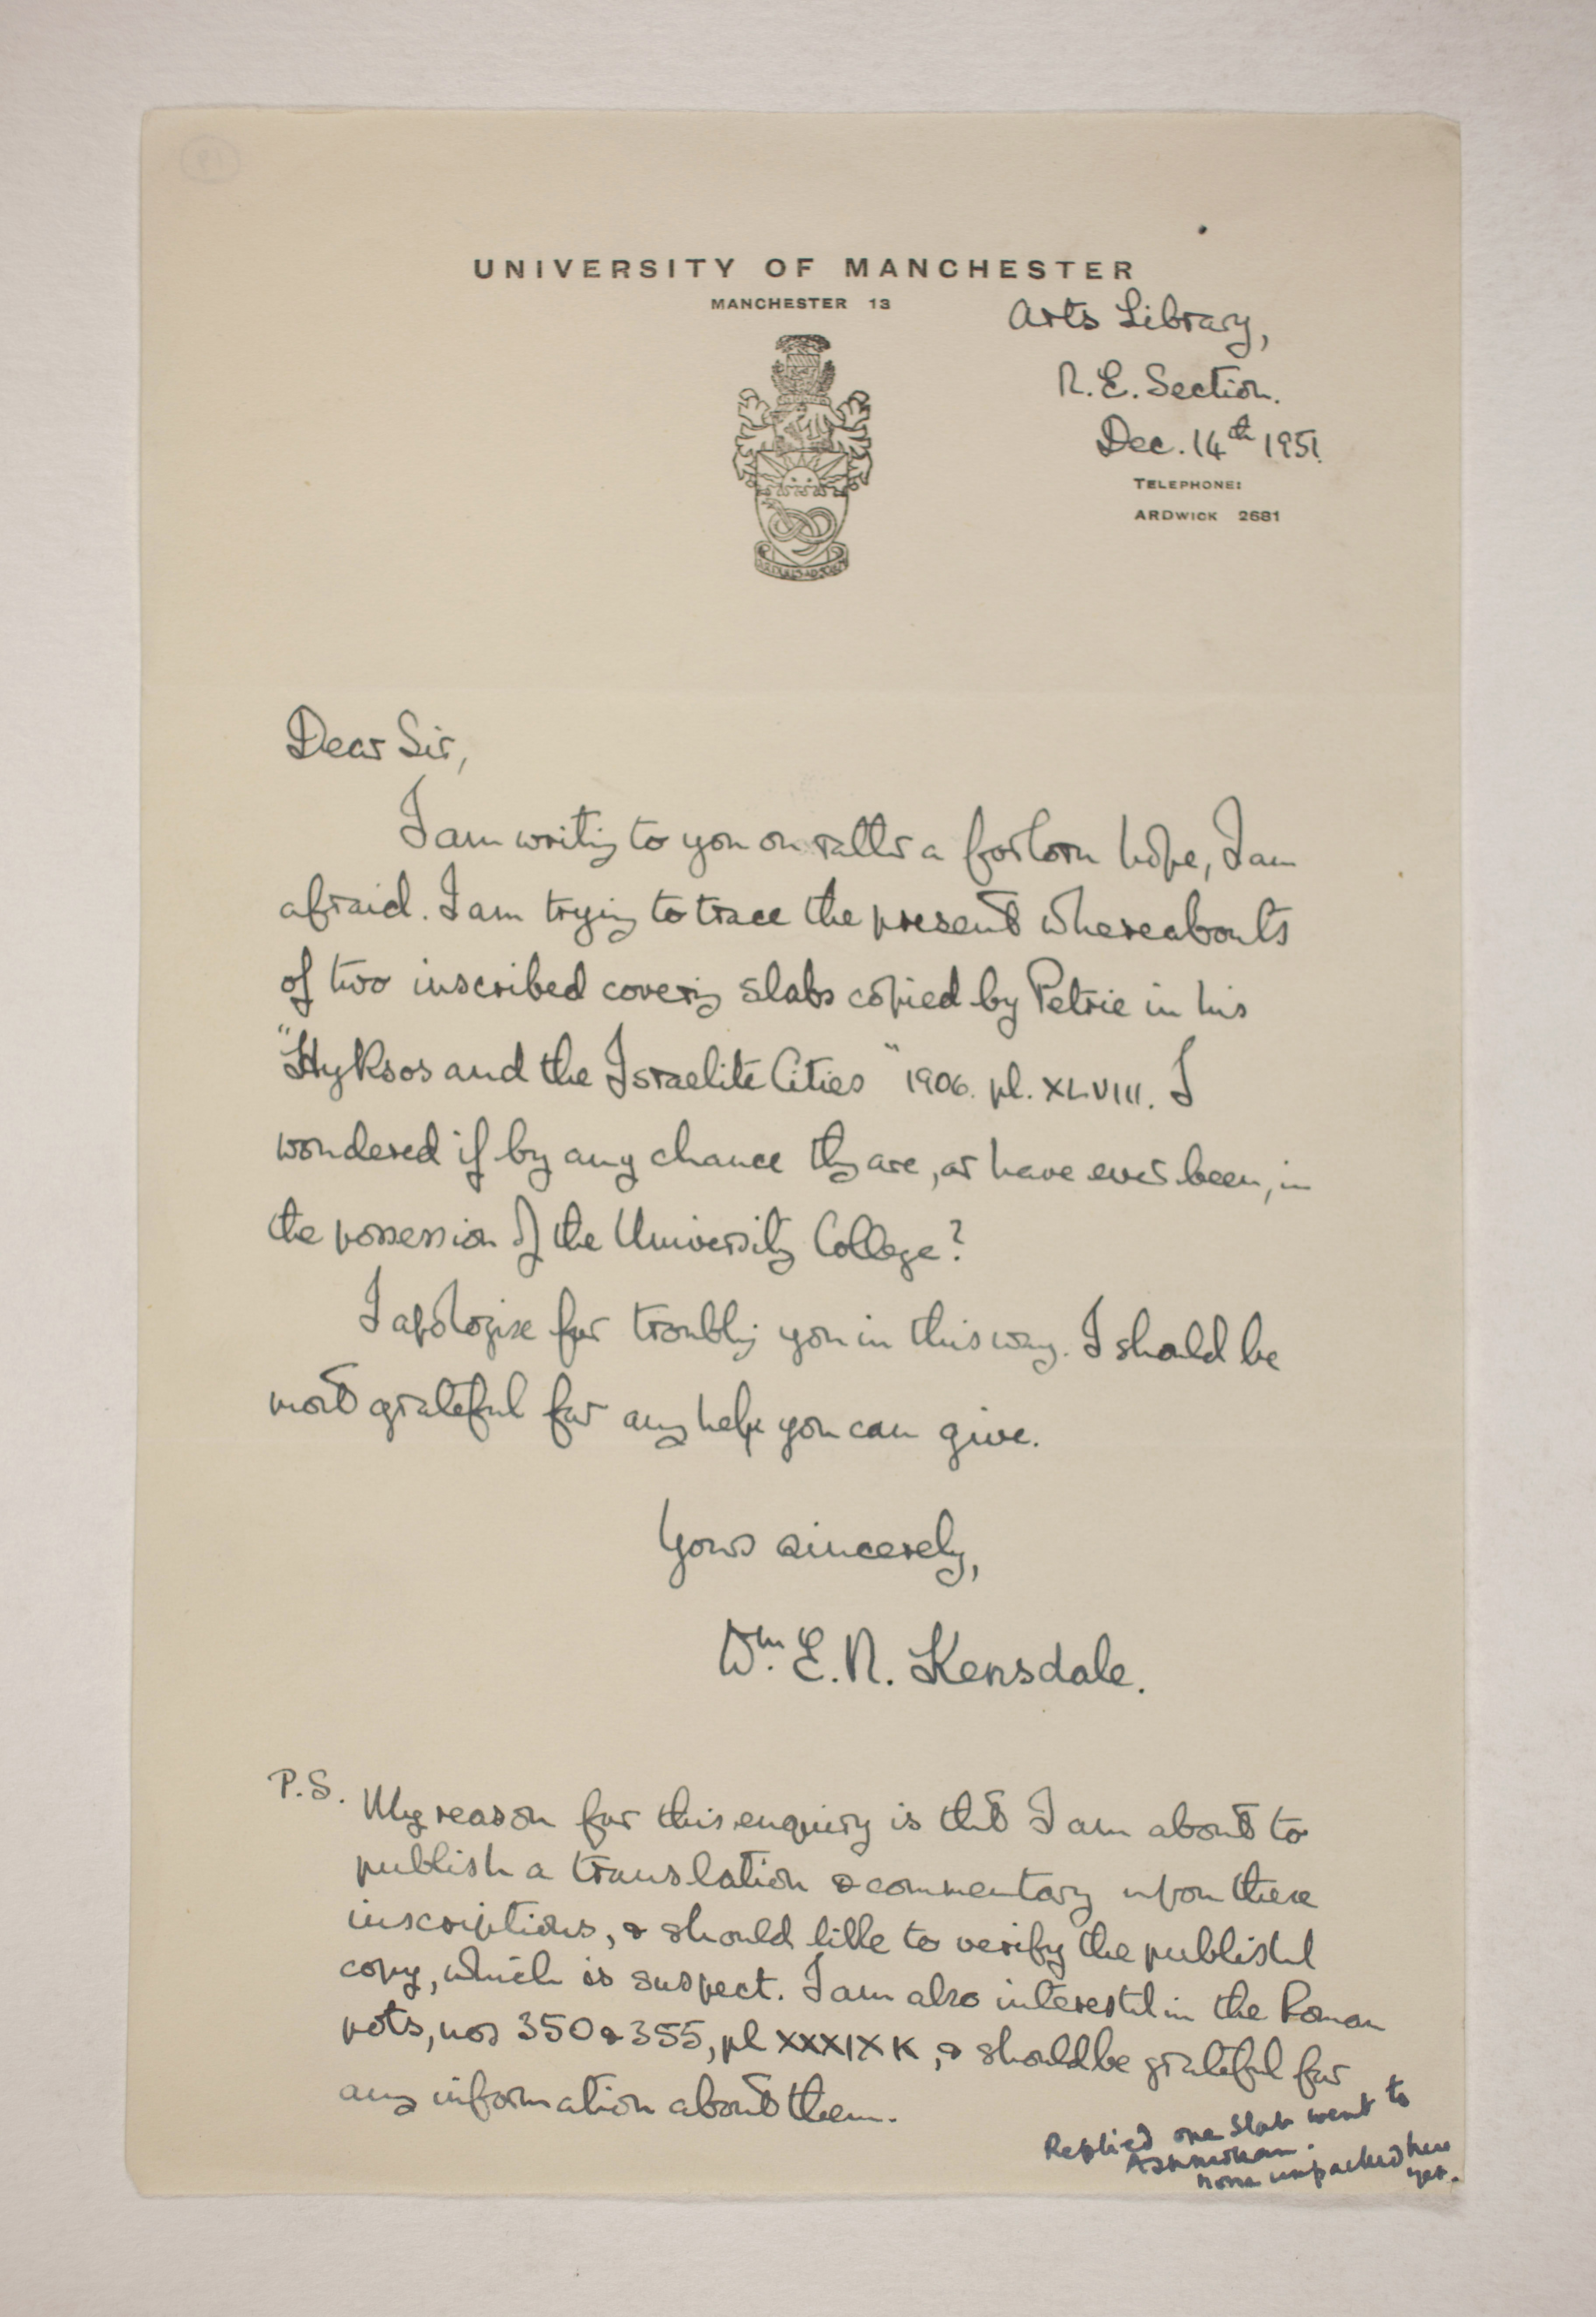 P1
UNIVERSITY OF MANCHESTER
MANCHESTER 13
Arts Library,
N.E. Section.
Dec. 14th 1951.
TELEPHONE:
ARDWICK 2681
Dear Sir,
I am writing to you on rather a forlorn hope, I am
afraid. I am trying to trace the present whereabouts
of two inscribed covering slabs copied by Petrie in his
"Hyksos and the Israelite Cities" 1906. pl. XLVIII. I
wondered if by any chance they are, or have ever been, in
the possession of the University College?
I apologise for troubling you in this way. I should be
most grateful for any help you can give.
Yours sincerely,
Wm. E. N. Kensdale.
P.S. My reason for this enquiry is that I am about to
publish a translation & commentary upon these
inscriptions, & should like to verify the published
copy, which is suspect. I am also interested in the Roman
pots, nos 350 & 355, pl XXXIX K, & should be grateful for
any information about them.
Replied one slab went to
Ashmolean.
None unpacked here
yet.